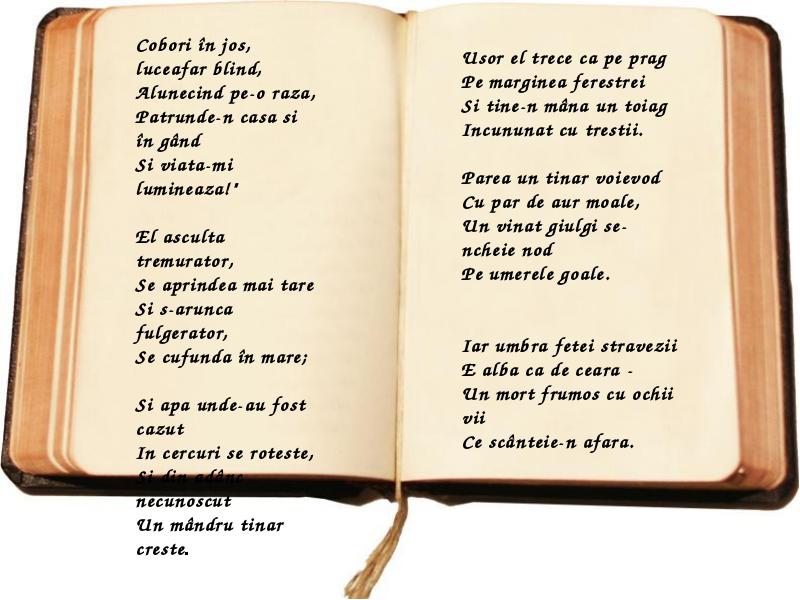 Cobori în jos,
luceafar blind,
Alunecind pe-o raza,
Patrunde-n casa si
în gând
Si viata-mi
lumineaza!"
El asculta
tremurator,
Se aprindea mai tare
Si s-arunca
fulgerator,
Se cufunda în mare;
Si apa unde-au fost
cazut
In cercuri se roteste,
Si din adânc
necunoscut
Un mândru tinar
creste.
Usor el trece ca pe prag
Pe marginea ferestrei
Si tine-n mâna un toiag
Incununat cu trestii.
Parea un tinar voievod
Cu par de aur moale,
Un vinat giulgi se-
ncheie nod
Pe umerele goale.
Iar umbra fetei stravezii
E alba ca de ceara -
Un mort frumos cu ochii
vii
Ce scânteie-n afara.